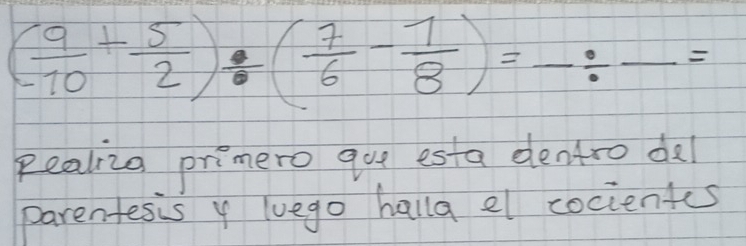 (9/10 + 5/2) ÷ (7/6 - 1/8) = __ ÷ __ =
Realiza primero que esta dentro del
parentesis y luego halla el cocientes